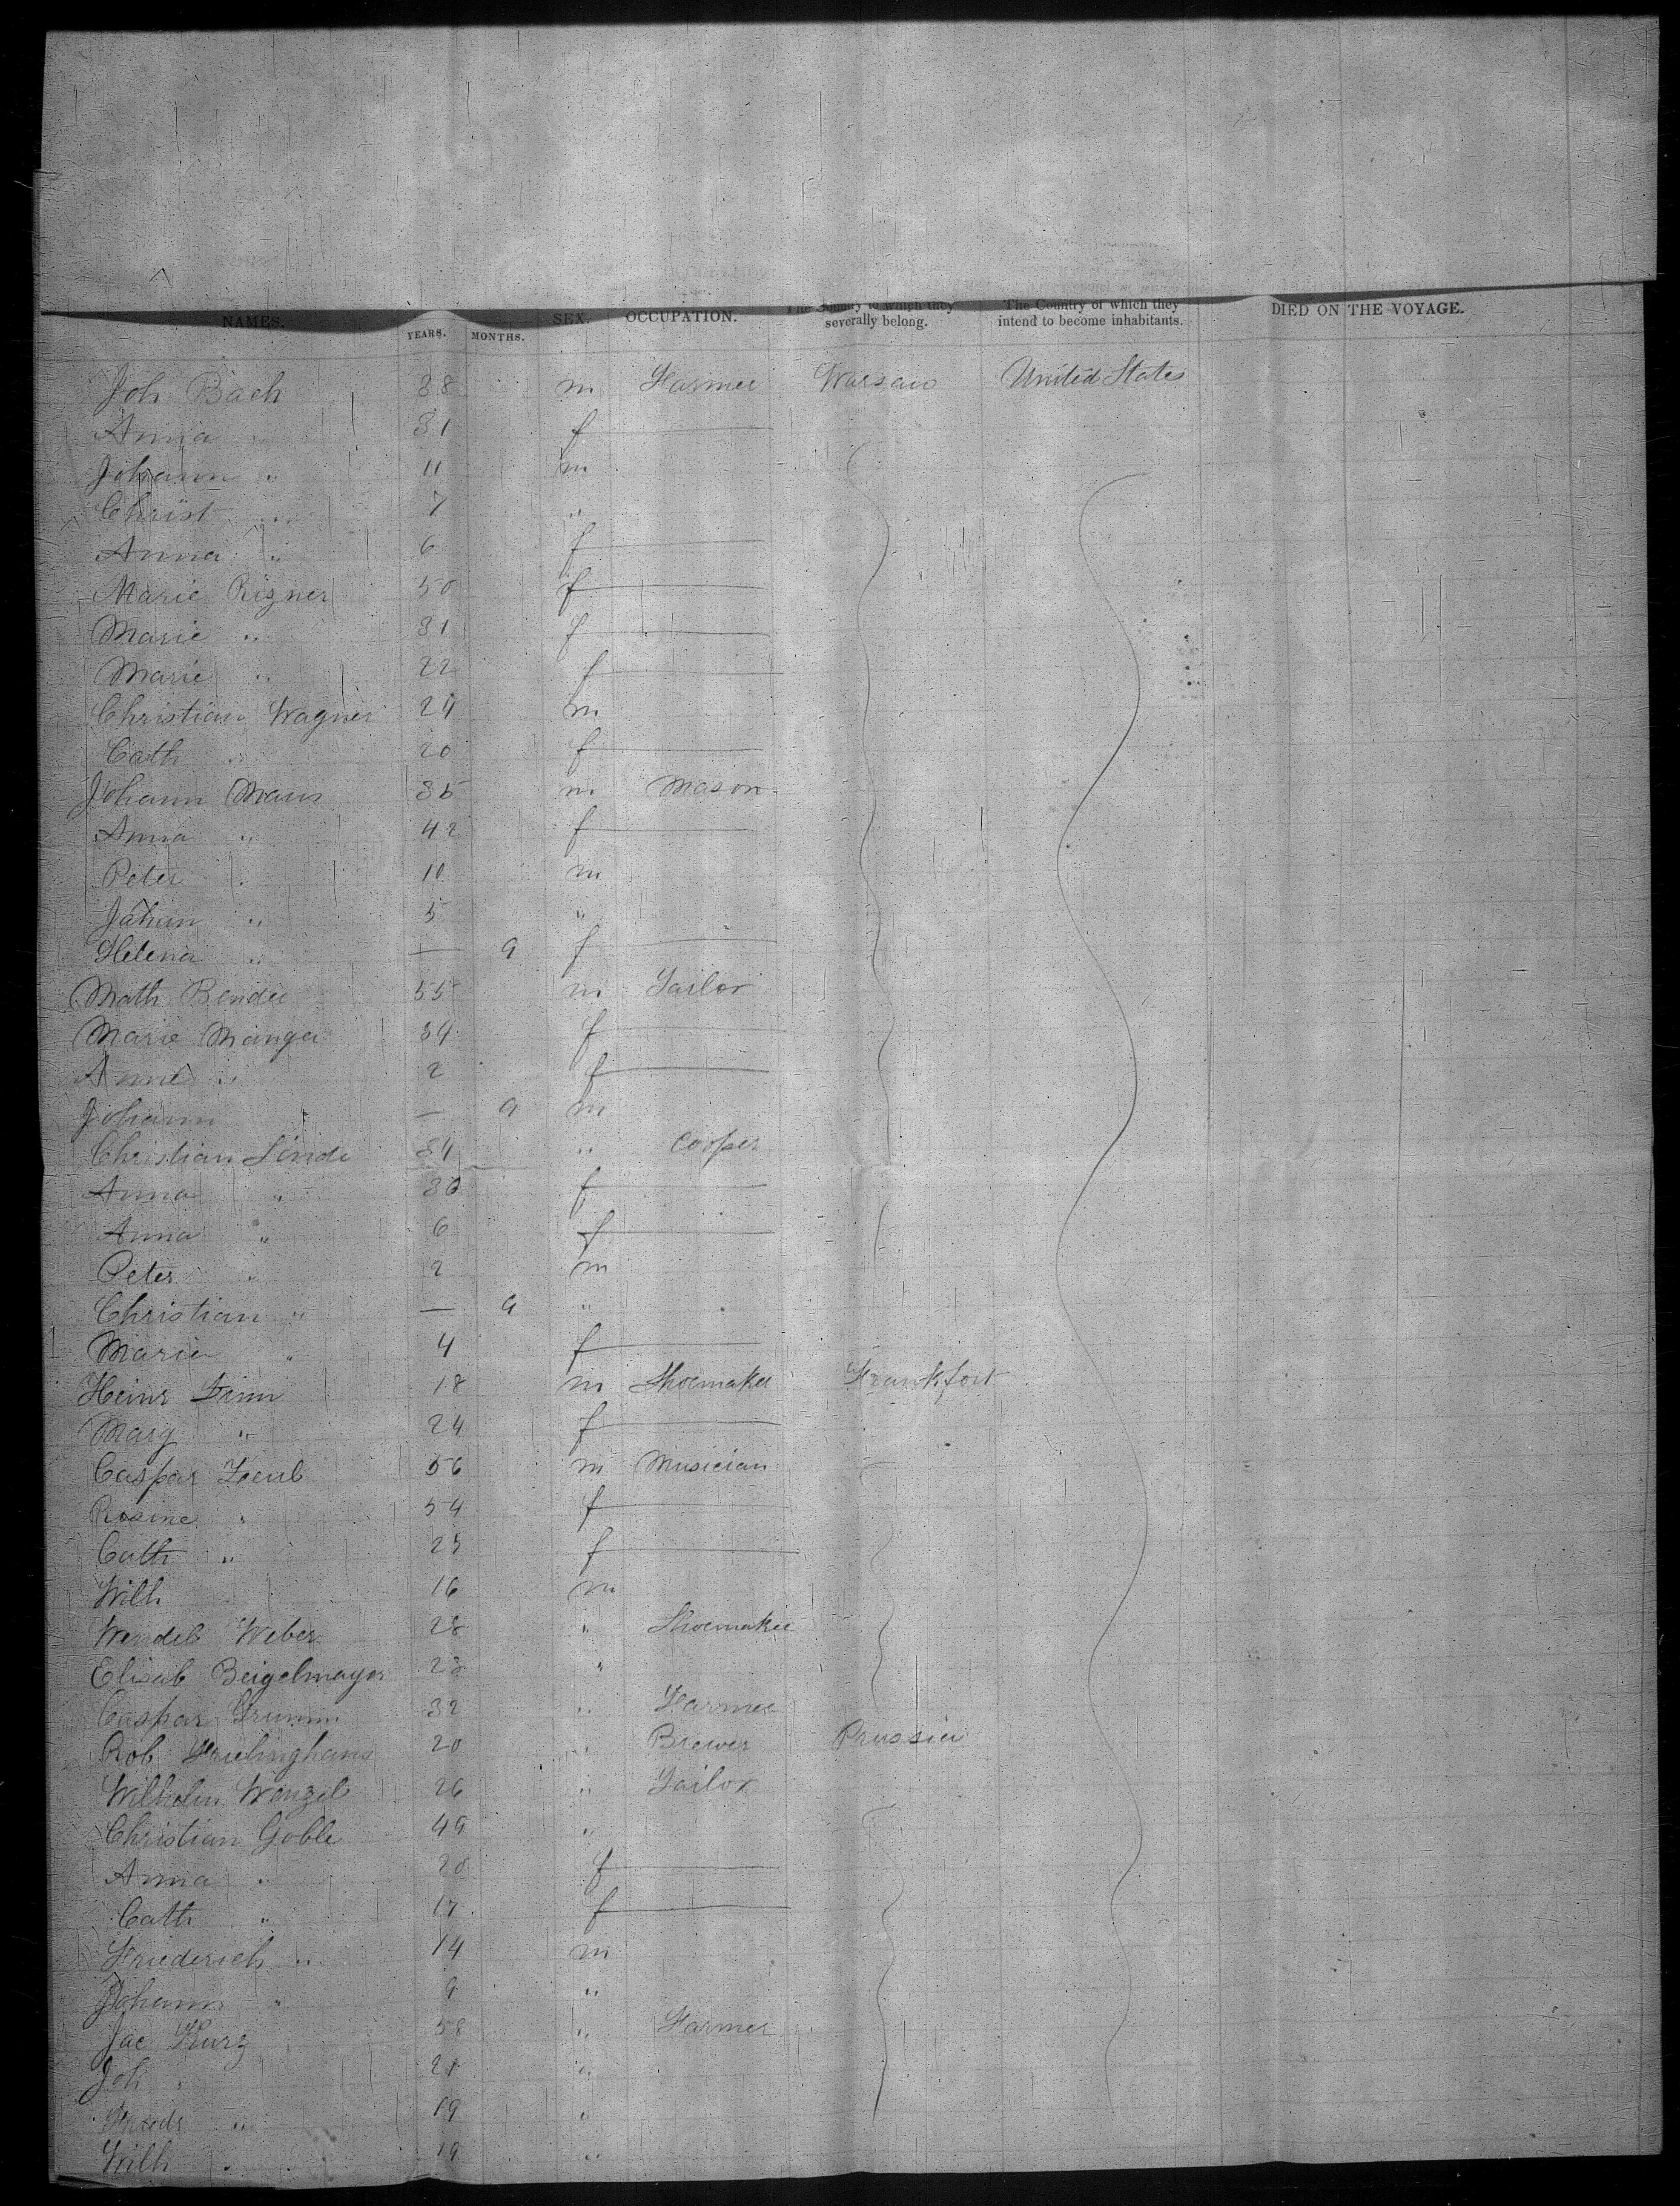 NAMES. YEARS. MONTHS. SEX. OCCUPATION. The Country to which they severally belong. The Country of which they intend to become inhabitants. DIED ON THE VOYAGE.
Joh Bach 38 m Farmer Warsaw United States
Anna " 31 f
Johann " 11 m
Christ " 7 "
Anna " 6 f
Marie Rizner 50 f
Marie " 31 f
Marie " 22 f
Christian Wagner 24 m
Cath " 20 f
Johann Maus 35 m Mason
Anna " 42 f
Peter " 10 m
Johan " 5 "
Helena " — 9 f
Math Bender 55 m Tailor
Marie Manger 34 f
Anna " 2 f
Johann — 9 m
Christian Linde 34 " Cooper
Anna " 30 f
Anna " 6 f
Peter " 2 m
Christian " — 9 "
Marie " 4 f
Heinr 18 m Shoemaker Frankfort
Marg " 24 f
Caspar 56 m Musician
Rosine " 54 f
Cath " 25 f
Wilh 16 m
Wendel Weber 28 " Shoemaker
Elisab Beigelmayer "
Caspar Grumm 32 " Farmer
Rob Frielinghaus 20 " Brewer Prussia
Wilhelm Wenzel 26 " Tailor
Christian Goble 49 "
Anna " 20 f
Cath " 17 f
Friederich " 14 m
Johann " 9 "
Jac Kurz 58 " Farmer
Joh " 21 "
" 19 "
Wilh " 19 "